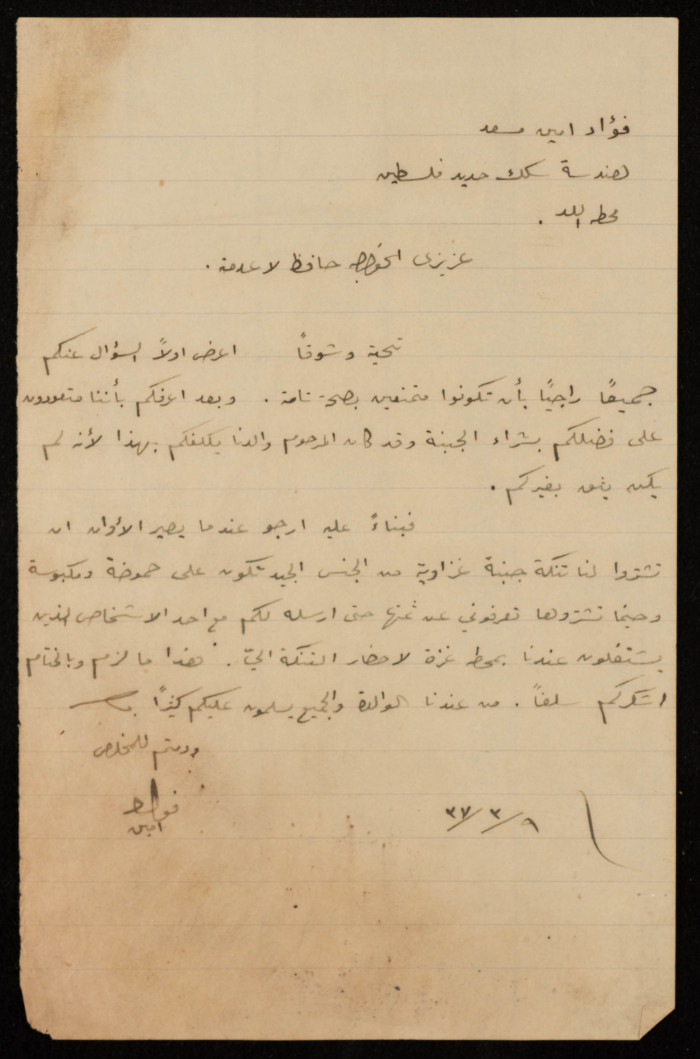 فؤاد امين مسعد
هندسة سكك حديد فلسطين
محطه اللد .
عزيزي الخواجه حافظ لا عدمته .
تحية وشوقاً اعرض اولاً السؤال عنكم
جميعًا راجيًا بأن تكونوا متمتعين بصحة تامة . وبعد اعرفكم بأننا متعودون
على فضلكم بشراء الجبنة وقد كان المرحوم والدنا يكلفكم بهذا لأنه لم
يكن يثق بغيركم .
فبناءً عليه ارجو عندما يصير الأوان ان
تشتروا لنا تنكة جبنة غزاوية من الجنس الجيد تكون على حموضة ومكبوسة
وحينما تشتروها تعرفوني عن ثمنها حتى ارسله لكم مع احد الاشخاص الذين
يشتغلون عندنا بمحطة غزة لاحضار التنكة اليّ . هذا ما لزم وبالختام
اشكركم سلفاً . من عندنا الوالدة والجميع يسلمون عليكم كثيرًا
ودمتم للمخلص
فؤاد
امين
٩/٣/٣٧